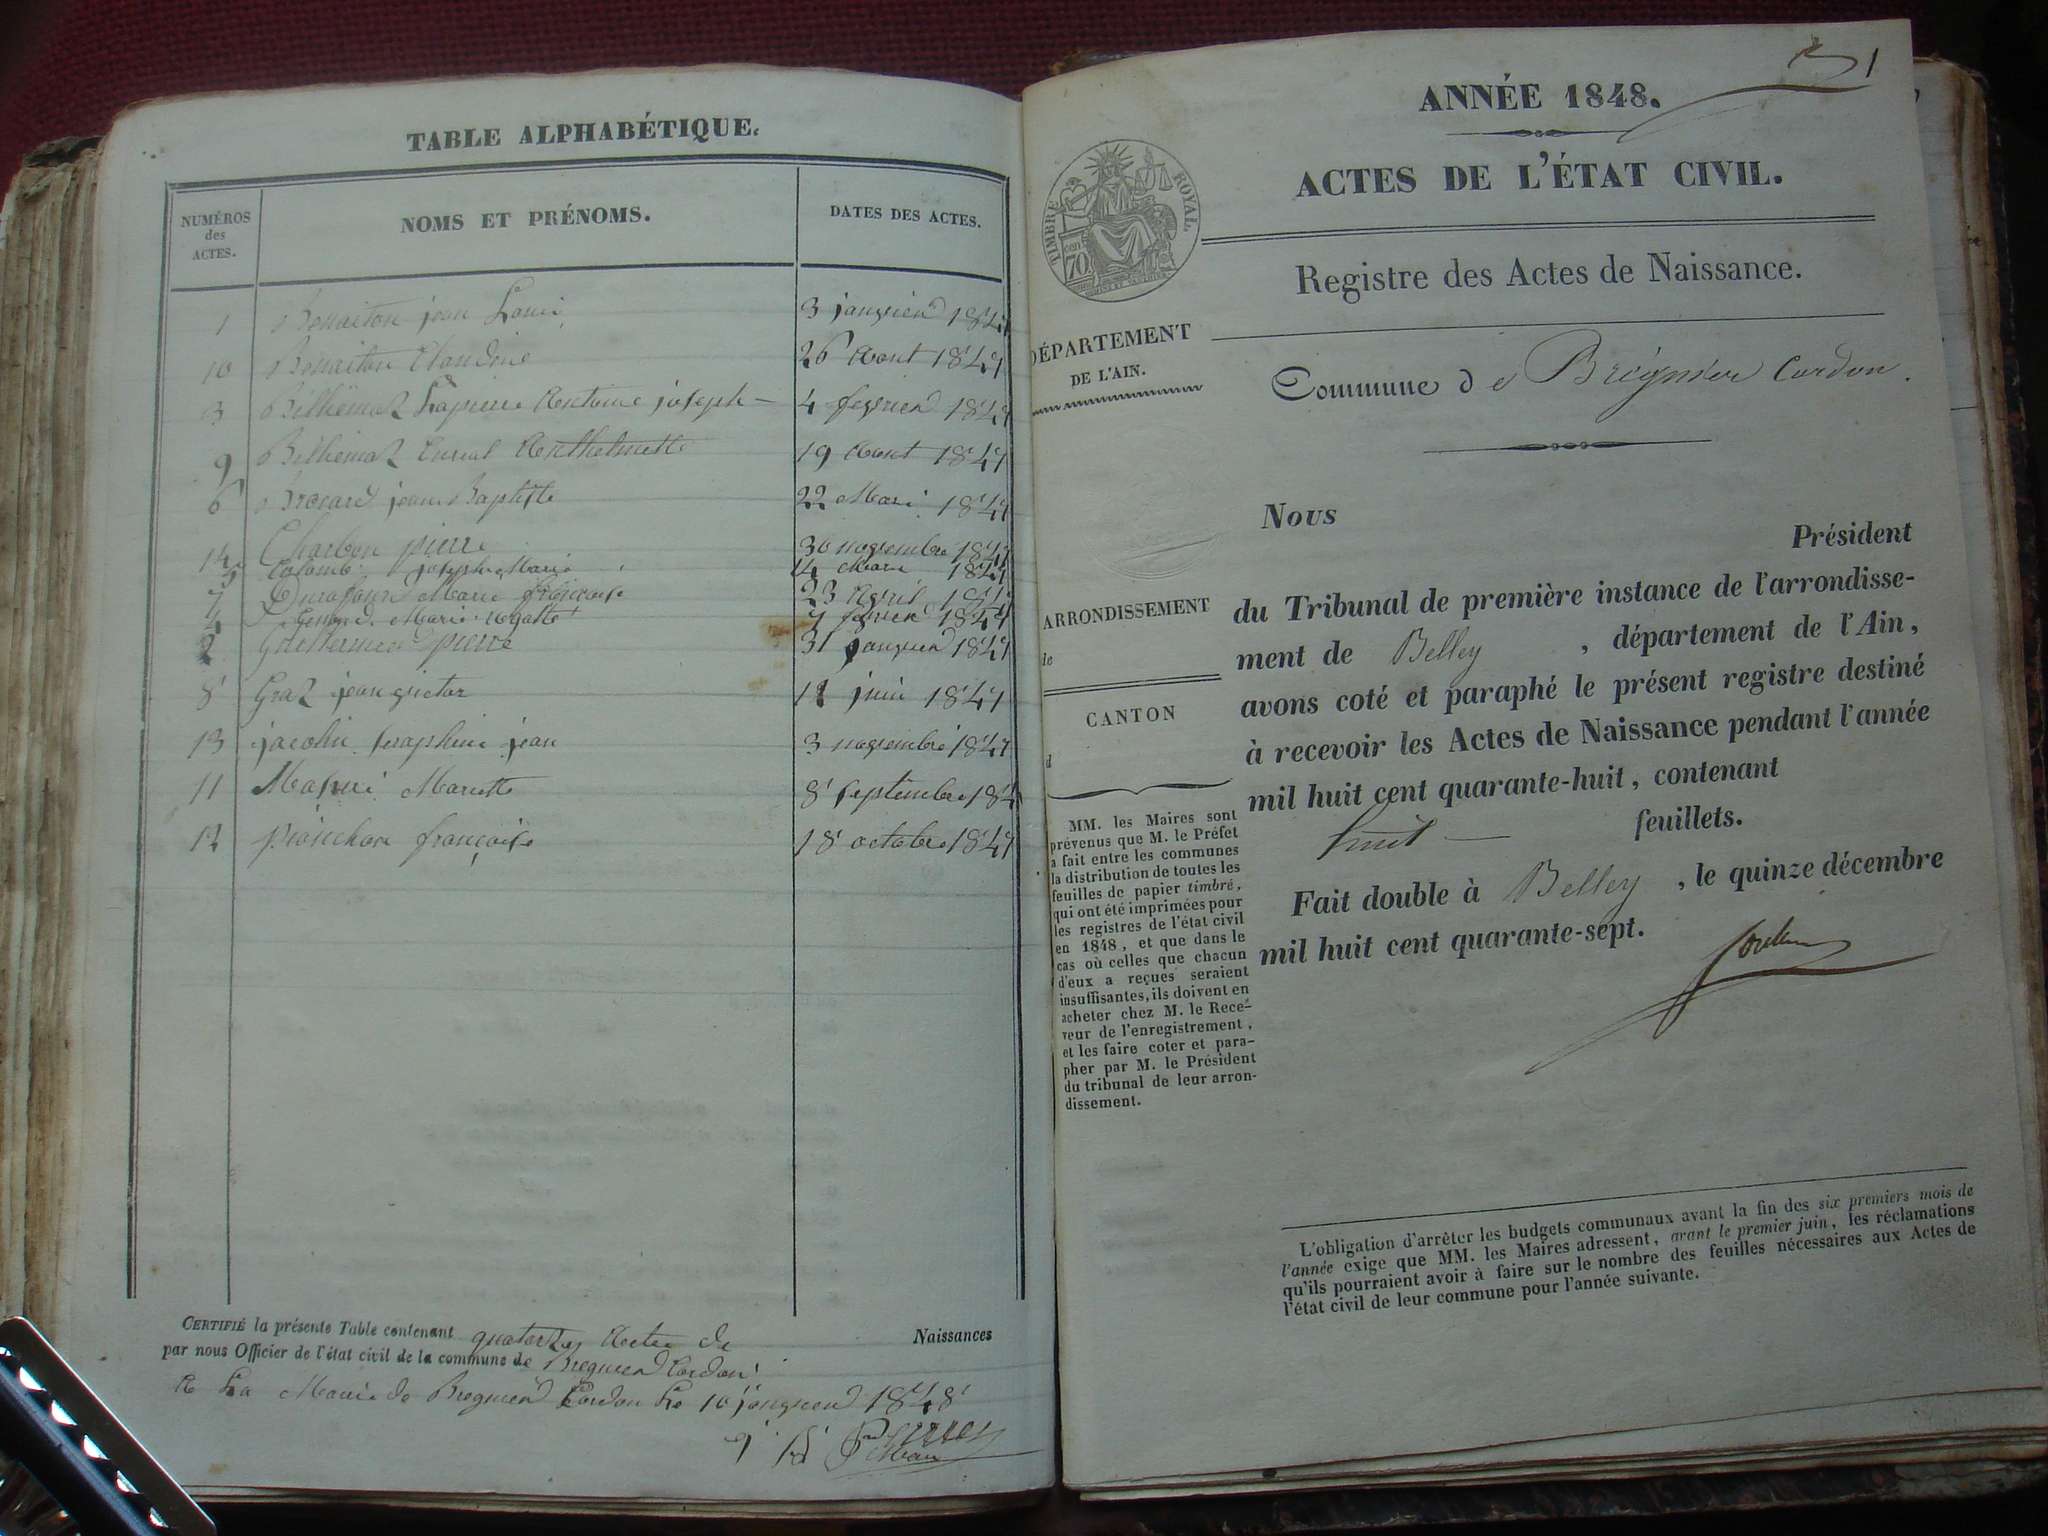 TABLE ALPHABÉTIQUE.
NUMÉROS
des
ACTES.
NOMS ET PRÉNOMS.
DATES DES ACTES.
1 jean Loui 3 janvier 1847
10 Claudine 26 Aout 1847
3 Bilhemaz Lapierre Antoine joseph 4 fevrier 1847
9 Bilhemaz 19 Aout 1847
6 jean Baptiste 22 Mai 1847
14 Charbon pierre 30 novembre 1847
5 Colomb joseph Marie 14 Mars 1847
7 Marie françoise 23 Avril 1847
4 Marie 7 fevrier 1847
2 pierre 31 janvier 1847
8 Graz jean victor 12 juin 1847
13 jacolin Seraphine jean 3 novembre 1847
11 Mariette 8 septembre 184
12 françoise 18 octobre 1847
CERTIFIÉ la présente Table contenant quatorze Actes de Naissances
par nous Officier de l'état civil de la commune de Bregnier Cordon
A La Mairie de Bregnier Cordon Le 10 janvier 1848
1
ANNÉE 1848.
ACTES DE L'ÉTAT CIVIL.
TIMBRE ROYAL
70
Registre des Actes de Naissance.
DÉPARTEMENT
DE L'AIN.
Commune de Brégnier Cordon.
ARRONDISSEMENT
de
CANTON
d
MM. les Maires sont
prévenus que M. le Préfet
a fait entre les communes
la distribution de toutes les
feuilles de papier timbré,
qui ont été imprimées pour
les registres de l'état civil
en 1848, et que dans le
cas où celles que chacun
d'eux a reçues seraient
insuffisantes, ils doivent en
acheter chez M. le Rece-
veur de l'enregistrement,
et les faire coter et para-
pher par M. le Président
du tribunal de leur arron-
dissement.
Nous
Président
du Tribunal de première instance de l'arrondisse-
ment de Belley , département de l'Ain,
avons coté et paraphé le présent registre destiné
à recevoir les Actes de Naissance pendant l'année
mil huit cent quarante-huit, contenant
huit feuillets.
Fait double à Belley , le quinze décembre
mil huit cent quarante-sept.
L'obligation d'arrêter les budgets communaux avant la fin des six premiers mois de
l'année exige que MM. les Maires adressent, avant le premier juin, les réclamations
qu'ils pourraient avoir à faire sur le nombre des feuilles nécessaires aux Actes de
l'état civil de leur commune pour l'année suivante.